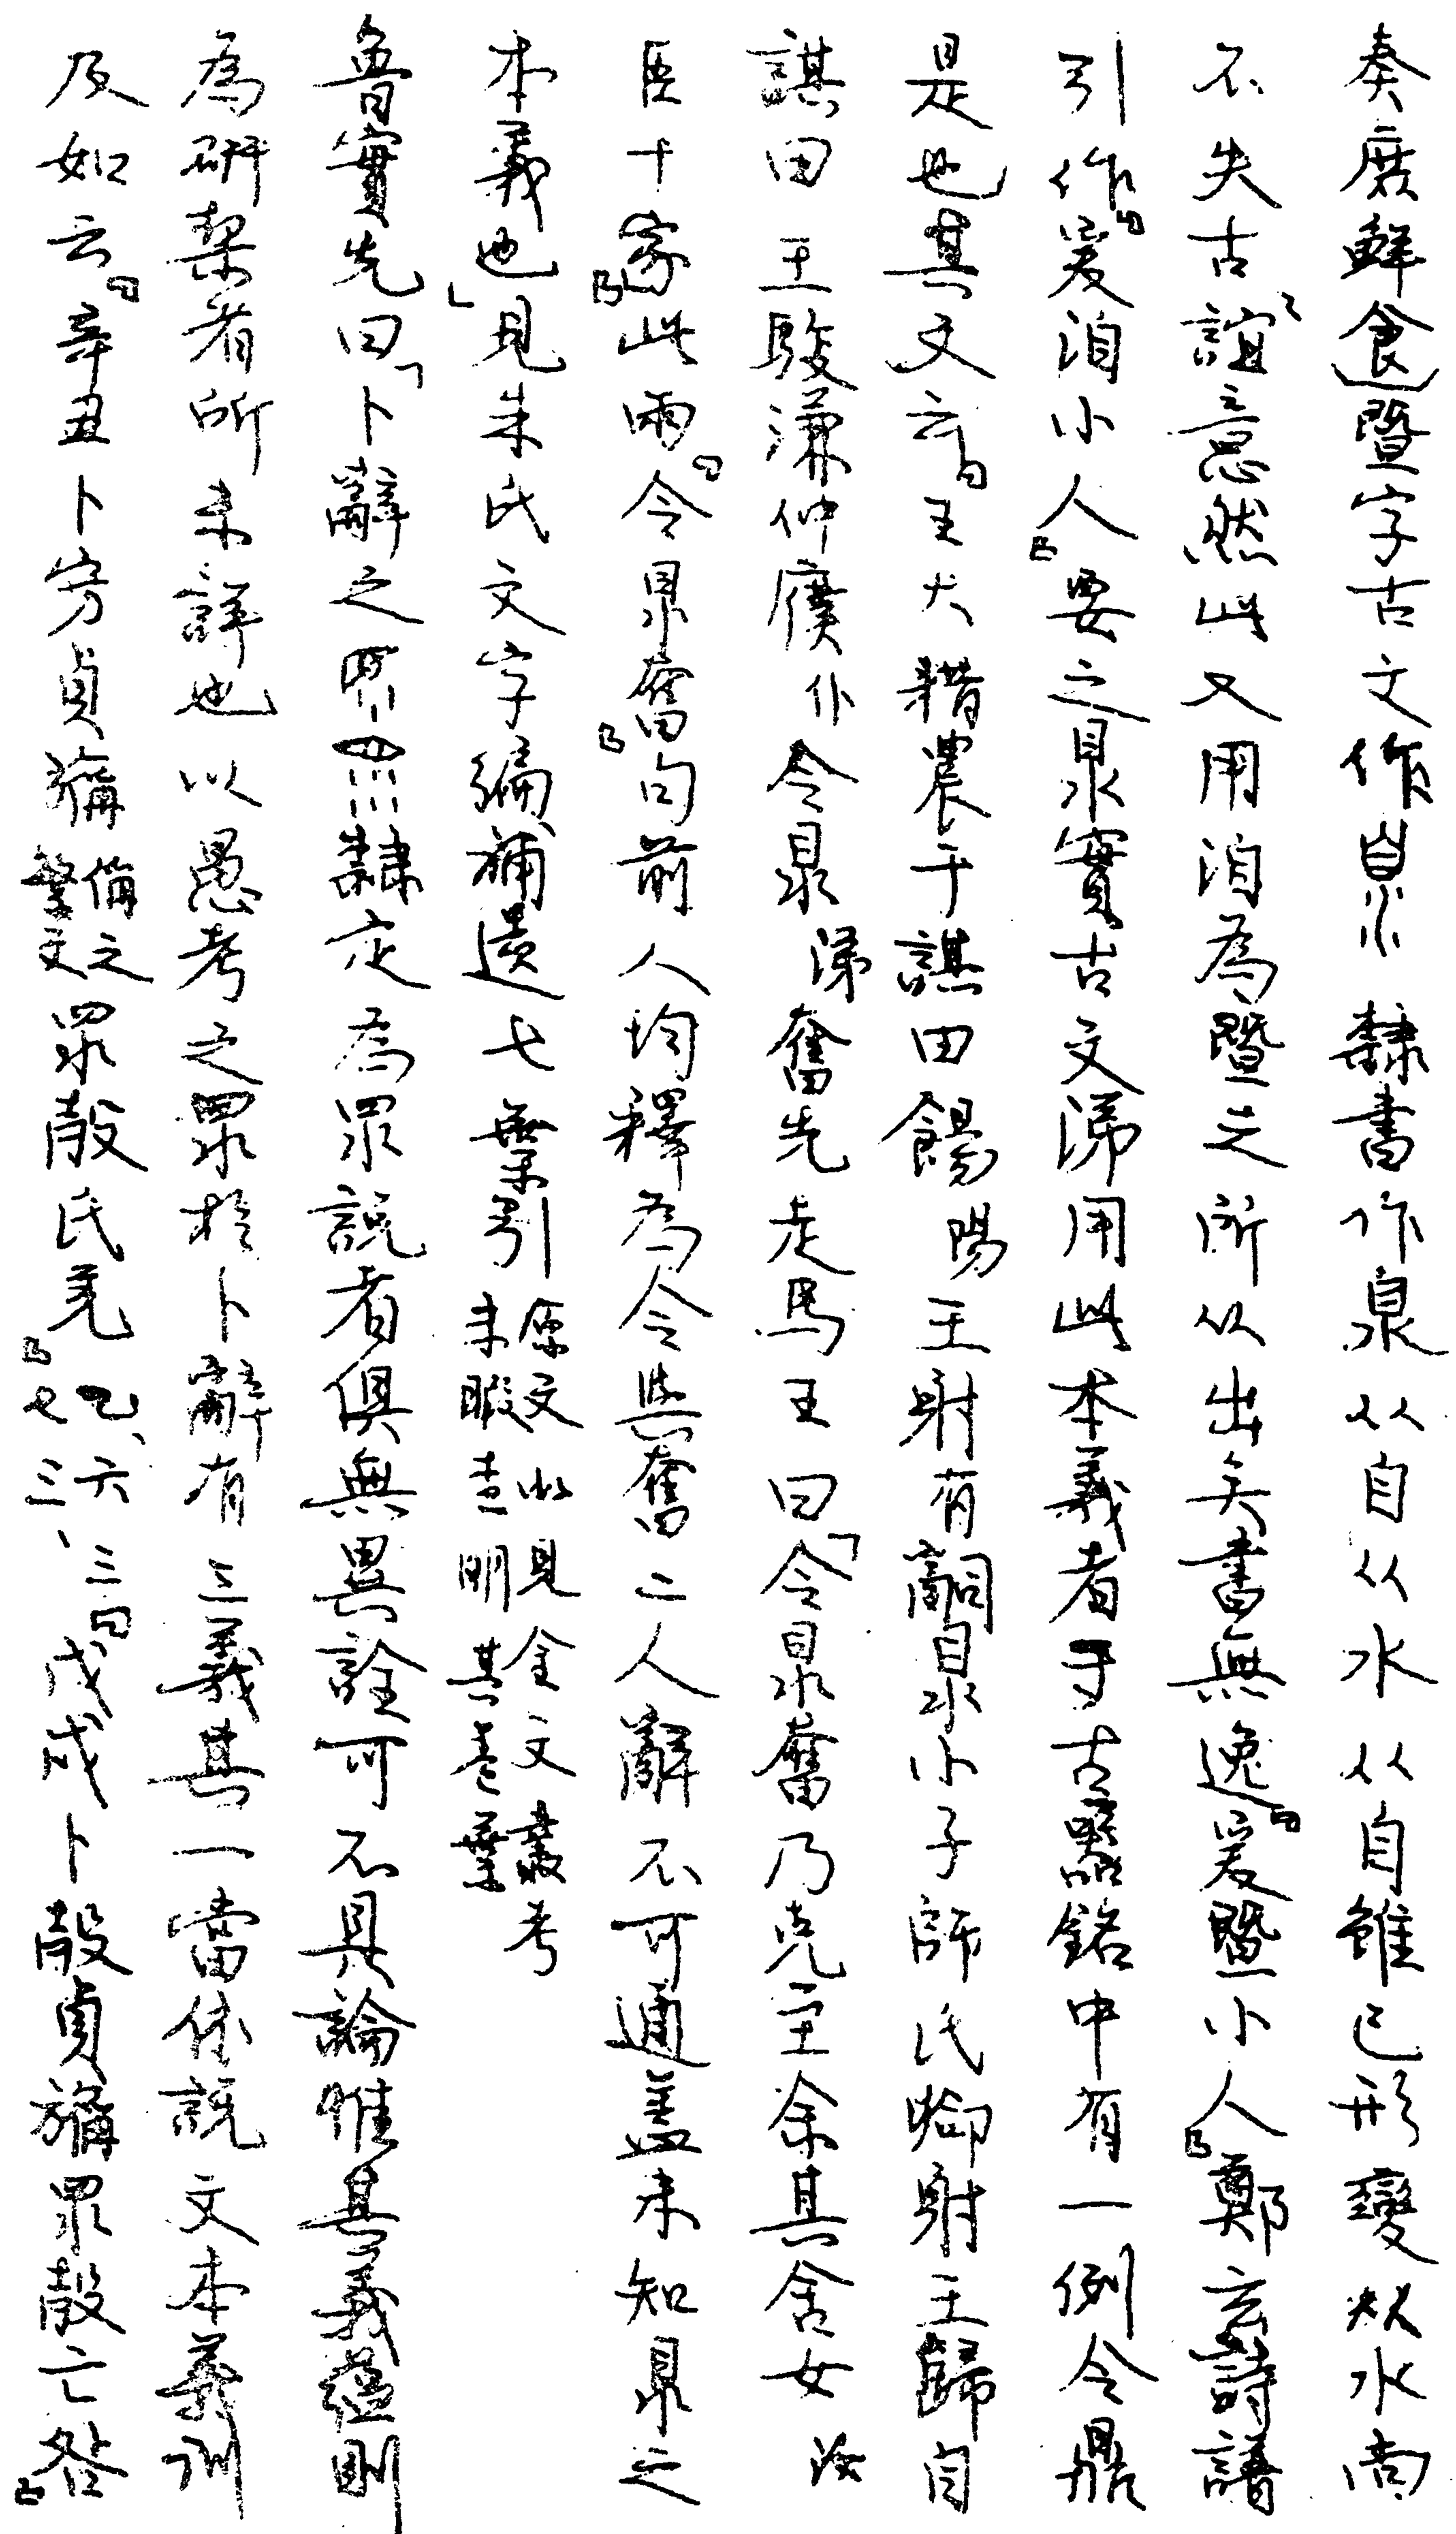 奏庶鮮食」暨字古文作臮隸書作泉从自从水从自雖已形變然水尚
不失古誼意然此又用洎為暨之所从出矣書無逸『爰暨小人』鄭玄詩譜
引作『爰洎小人』要之眔實古文涕用此本義者于古器銘中有一例令鼎
是也其文云『王大耤農于諆田餳陽王射有嗣眔小子師氏卿射王歸自
諆田王馭濂仲𢊁仆令眔涕奮先走馬王曰「令眔奮乃克至余其舍女汝
臣十家』此兩『令眔奮』句前人均釋為令與奮二人辭不可通蓋未知眔之
本義也」見朱氏文字編補遺七葉引原文出見金文叢考未暇查明其卷葉
魯實先曰「卜辭之眔隸定為眔說者俱無異詮可不具論惟其義蘊則
為研栔者所未詳也以愚考之眔於卜辭有三義其一當依說文本義訓
及如云『辛丑卜㝑貞𤕯偁之繁文眔㱿氏羌』乙、六七三、三『戊戌卜㱿貞𤕯眔㱿亡咎』